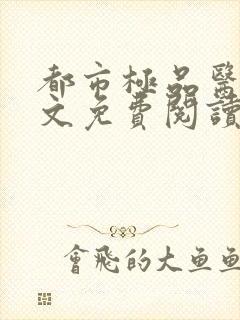 都市極品醫
文免費閱讀
會飛的大魚魚